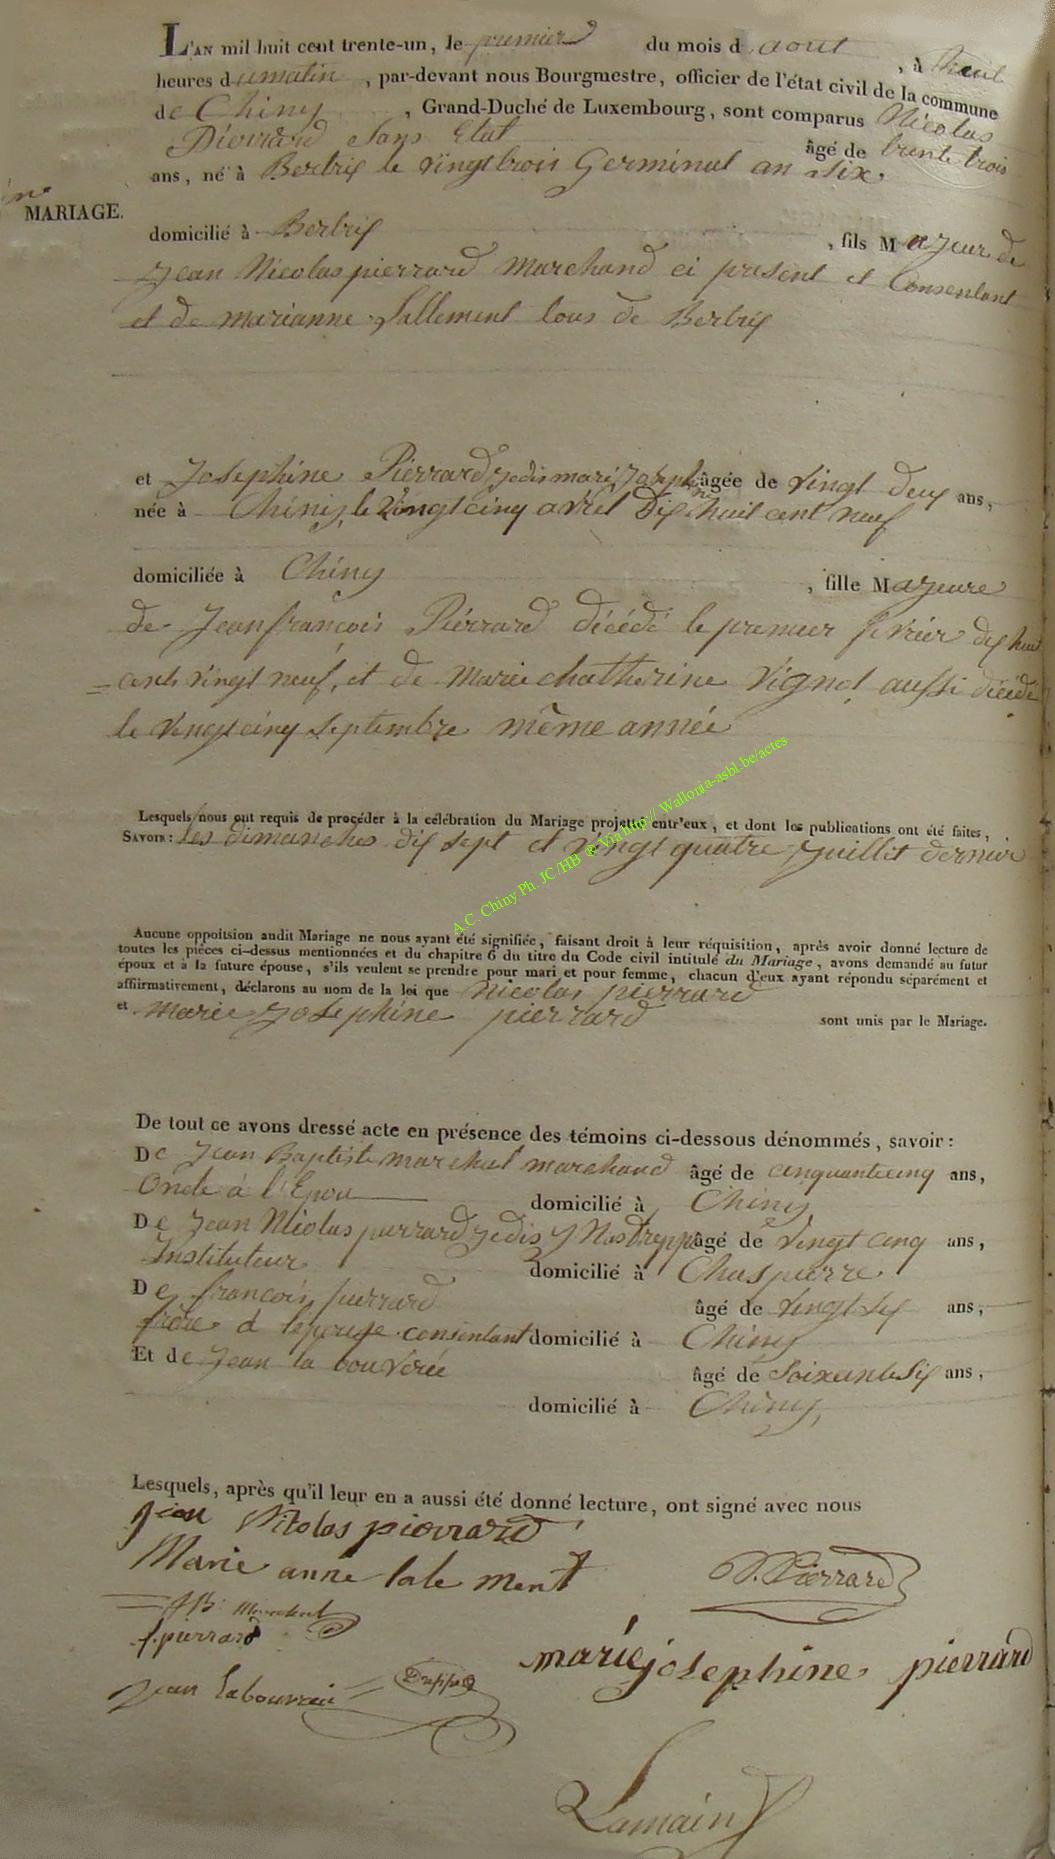 L'AN mil huit cent trente-un, le premier du mois d aout, à huit
heures du matin, par-devant nous Bourgmestre, officier de l'état civil de la commune
de Chiny, Grand-Duché de Luxembourg, sont comparus Nicolas
Pierrard Sans Etat âgé de trente trois
ans, né à Bertrix le vingt trois Germinal an Six.
MARIAGE.
domicilié à Bertrix, fils Majeur de
Jean Nicolas pierrard marchand ci present et Consentant
et de marianne Lallement tous de Bertrix
et Josephine Pierrard, je dis marie Josephine âgée de vingt deux ans,
née à Chiny, le vingt cinq avril Dix huit cent neuf
domiciliée à Chiny, fille Majeure
de Jean francois Pierrard décédé le premier fevrier dix huit
cent vingt neuf, et de marie chatherine Vignol aussi décédé
le vingt cinq septembre même année
Lesquels nous ont requis de procéder à la célébration du Mariage projetté entr'eux, et dont les publications ont été faites,
SAVOIR: les dimanches dix sept et vingt quatre juillet dernier
A.C. Chiny Ph. JC/HB ® Via http:// Wallonia-asbl.be/actes
Aucune oppoitsion audit Mariage ne nous ayant été signifiée, faisant droit à leur réquisition, après avoir donné lecture de
toutes les pièces ci-dessus mentionnées et du chapitre 6 du titre du Code civil intitulé du Mariage, avons demandé au futur
époux et à la future épouse, s'ils veulent se prendre pour mari et pour femme, chacun d'eux ayant répondu séparément et
affirmativement, déclarons au nom de la loi que Nicolas pierrard
et marie Josephine pierrard sont unis par le Mariage.
De tout ce avons dressé acte en présence des témoins ci-dessous dénommés, savoir:
De Jean Baptiste marchal marchand âgé de cinquante cinq ans,
Oncle à l'Epou domicilié à Chiny
De Jean Nicolas pierrard je dis âgé de vingt cinq ans,
Instituteur domicilié à Chaspierre
De francois pierrard âgé de vingt six ans,
frère à l'epouse consentant domicilié à Chiny
Et de Jean la bouverie âgé de soixante six ans,
domicilié à Chiny,
Lesquels, après qu'il leur en a aussi été donné lecture, ont signé avec nous
Jean Nicolas pierrard
Marie anne lalement N. Pierrard
JB: Marchal
f. pierrard
marie josephine pierrard
jean labouverie
Lamain